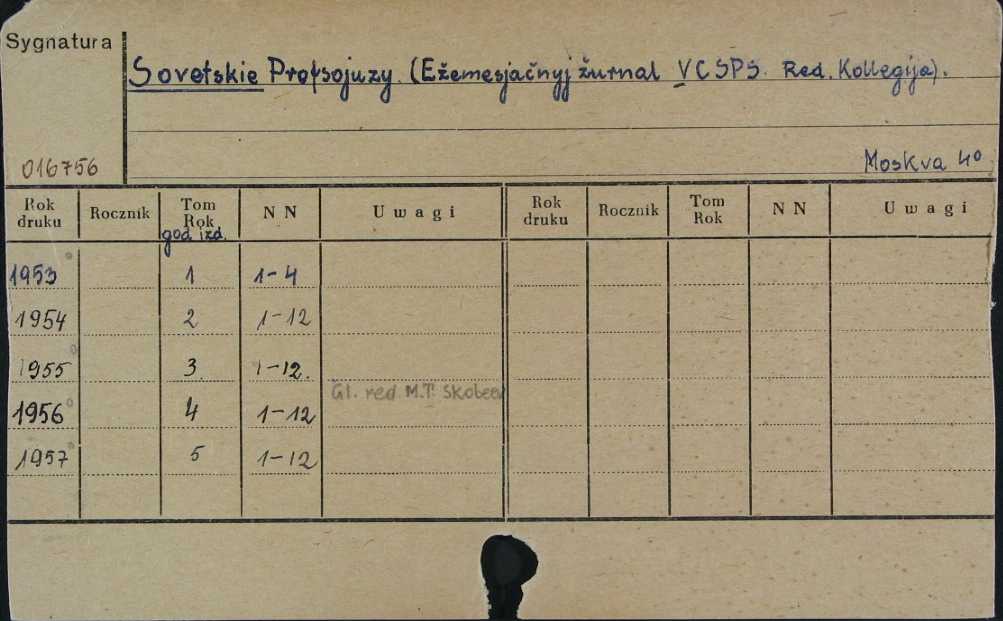 Sygnatura
Sovetskie Profsojuzy. (Ežemesjačnyj žurnal VCSPS. Red. Kollegija).
016756
Moskva 4º
Rok druku Rocznik Tom Rok god izd. N N Uwagi Rok druku Rocznik Tom Rok N N Uwagi
1953 1 1-4
1954 2 1-12
1955 3 1-12.
Gl. red M.T. Skobeev
1956 4 1-12
1957 5 1-12